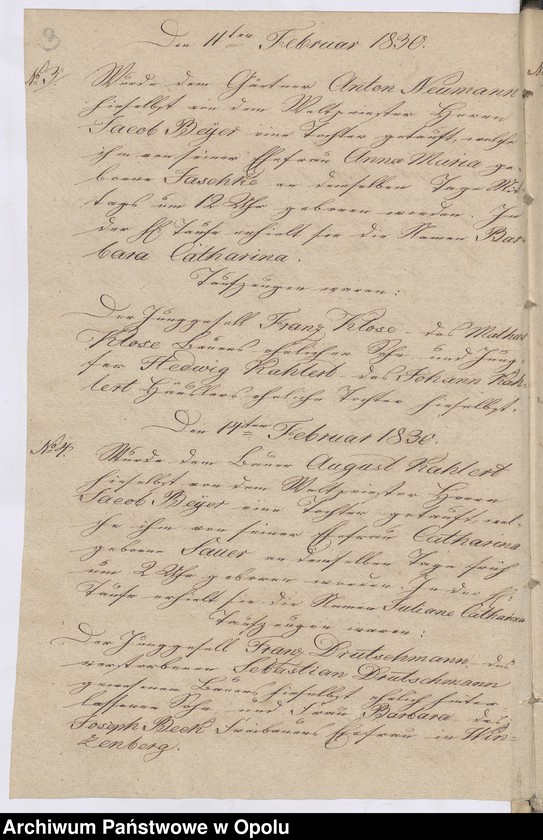 3
Den 11ten Februar 1830.
No 3. Wurde dem Gärtner Anton Neumann
hieselbst von dem Weltpriester Herrn
Jacob Beÿer eine Tochter getauft, welche
ihm von seiner Ehefrau Anna Maria ge-
borne Jaschke an demselben Tage Mit-
tags um 12 Uhr geboren worden. In
der hl. Taufe erhielt sie die Namen Bar-
bara Catharina.
Taufzeugen waren:
Der Junggesell Franz Klose des Mathes
Klose Bauers ehelicher Sohn und Jung-
fer Hedwig Kahlert des Johann Kah-
lert Häuslers eheliche Tochter hieselbst.
Den 14ten Februar 1830.
No 4. Wurde dem Bauer August Kahlert
hieselbst von dem Weltpriester Herrn
Jacob Beÿer eine Tochter getauft, wel-
che ihm von seiner Ehefrau Catharina
geborne Sauer an demselben Tage früh
um 2 Uhr geboren worden. In der hl.
Taufe erhielt sie die Namen Juliane Catharina
Taufzeugen waren:
Der Junggesell Franz Drutschmann des
verstorbenen Sebastian Drutschmann
gewesenen Bauers hieselbst ehelich hinter-
lassener Sohn und Frau Barbara des
Joseph Beck Freibauers Ehefrau in Win-
zenberg.
Archiwum Państwowe w Opolu